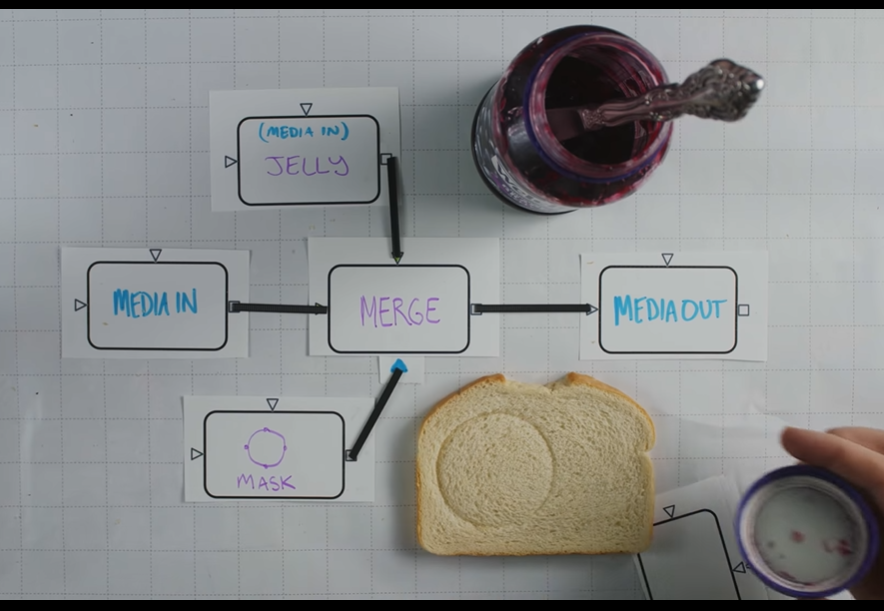 (MEDIA IN)
JELLY
MEDIA IN
MERGE
MEDIA OUT
MASK